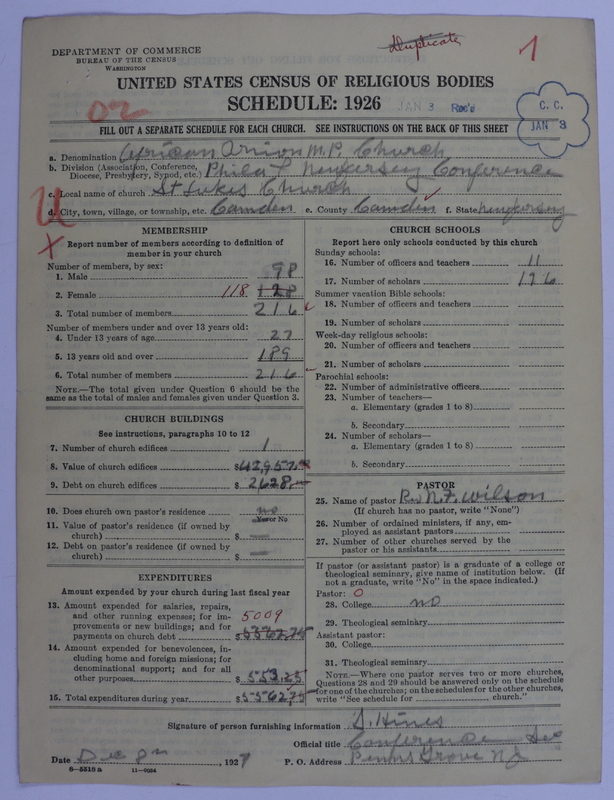 DEPARTMENT OF COMMERCE
BUREAU OF THE CENSUS
WASHINGTON
Duplicate
1
UNITED STATES CENSUS OF RELIGIOUS BODIES
SCHEDULE: 1926
JAN 3 Rec'd
C. C.
JAN 3
FILL OUT A SEPARATE SCHEDULE FOR EACH CHURCH. SEE INSTRUCTIONS ON THE BACK OF THIS SHEET
a. Denomination African Union M.P. Church
b. Division (Association, Conference, Diocese, Presbytery, Synod, etc.) Phila & New Jersey Conference
c. Local name of church St Lukes Church
d. City, town, village, or township, etc. Camden e. County Camden f. State New Jersey
MEMBERSHIP
Report number of members according to definition of
member in your church
Number of members, by sex:
1. Male 98
2. Female 118 128
3. Total number of members 216
Number of members under and over 13 years old:
4. Under 13 years of age 27
5. 13 years old and over 189
6. Total number of members 216
NOTE.—The total given under Question 6 should be the
same as the total of males and females given under Question 3.
CHURCH BUILDINGS
See instructions, paragraphs 10 to 12
7. Number of church edifices 1
8. Value of church edifices $42957
9. Debt on church edifices $2628
10. Does church own pastor's residence no
Yes or No
11. Value of pastor's residence (if owned by
church) $ —
12. Debt on pastor's residence (if owned by
church) $ —
EXPENDITURES
Amount expended by your church during last fiscal year
13. Amount expended for salaries, repairs,
and other running expenses; for im-
provements or new buildings; and for
payments on church debt 5009 $5562.75
14. Amount expended for benevolences, in-
cluding home and foreign missions; for
denominational support; and for all
other purposes $553.25
15. Total expenditures during year $5562.75
CHURCH SCHOOLS
Report here only schools conducted by this church
Sunday schools:
16. Number of officers and teachers 11
17. Number of scholars 176
Summer vacation Bible schools:
18. Number of officers and teachers
19. Number of scholars
Week-day religious schools:
20. Number of officers and teachers
21. Number of scholars
Parochial schools:
22. Number of administrative officers
23. Number of teachers—
a. Elementary (grades 1 to 8)
b. Secondary
24. Number of scholars—
a. Elementary (grades 1 to 8)
b. Secondary
PASTOR
25. Name of pastor R. N. F. Wilson
(If church has no pastor, write "None")
26. Number of ordained ministers, if any, em-
ployed as assistant pastors
27. Number of other churches served by the
pastor or his assistants
If pastor (or assistant pastor) is a graduate of a college or
theological seminary, give name of institution below. (If
not a graduate, write "No" in the space indicated.)
Pastor: 0
28. College no
29. Theological seminary
Assistant pastor:
30. College
31. Theological seminary
NOTE.—Where one pastor serves two or more churches,
Questions 28 and 29 should be answered only on the schedule
for one of the churches; on the schedules for the other churches,
write "See schedule for church."
Signature of person furnishing information J. Hines
Official title Conference Sec
Date Dec 8th, 1927 P. O. Address Penns Grove NJ
8—5518a 11—9064